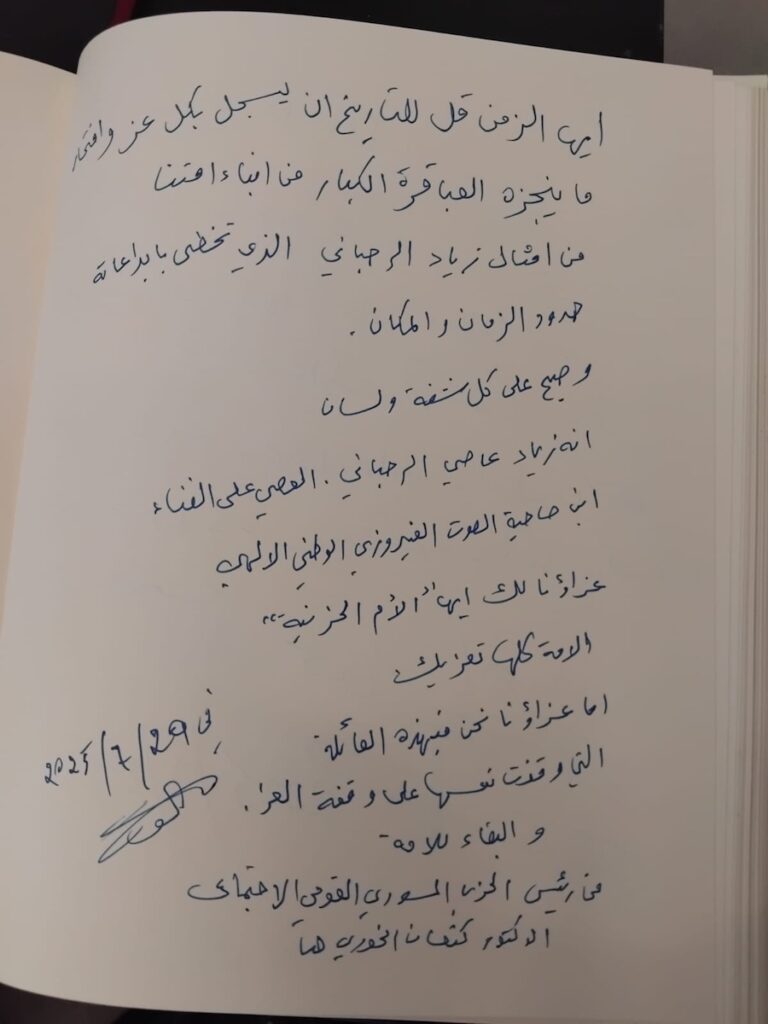 ايها الزمن قل للتاريخ ان يسجل بكل عز وافتخار
ما ينجزه العباقرة الكبار من ابناء امتنا
من امثال زياد الرحباني الذي تخطى بابداعاته
حدود الزمان والمكان .
وصبح على كل شفة ولسان
انه زياد عاصي الرحباني . العصي على الفناء
ابن صاحبة الصوت الفيروزي الوطني الالهي
عزاؤنا لك ايها "الأم الحزينة"
الامة كلها تعزيك
اما عزاؤنا نحن فبهذه العائلة
التي وقفت نفسها على وقفة العز .
و البقاء للامة
في 29/7/2025
من رئيس الحزب السوري القومي الاجتماعي
الدكتور كنعان الخوري حنا